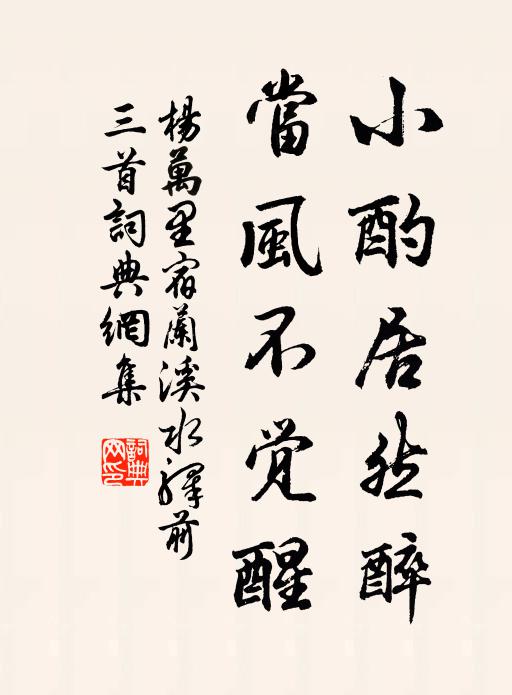 小酌居然醉
當風不觉醒
楊萬里宿蘭溪水驛前
三首詞典網集
詞典
网印